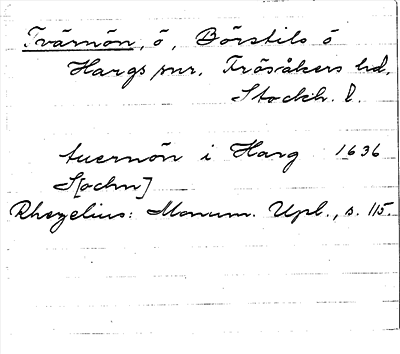 Tvärnön, ö, Börstils ö
Hargs snr, Frösåkers hd,
Stockh. l.
tuernön i Harg 1636
S[ochn]
Rhezelius: Monum. Upl., s. 115.